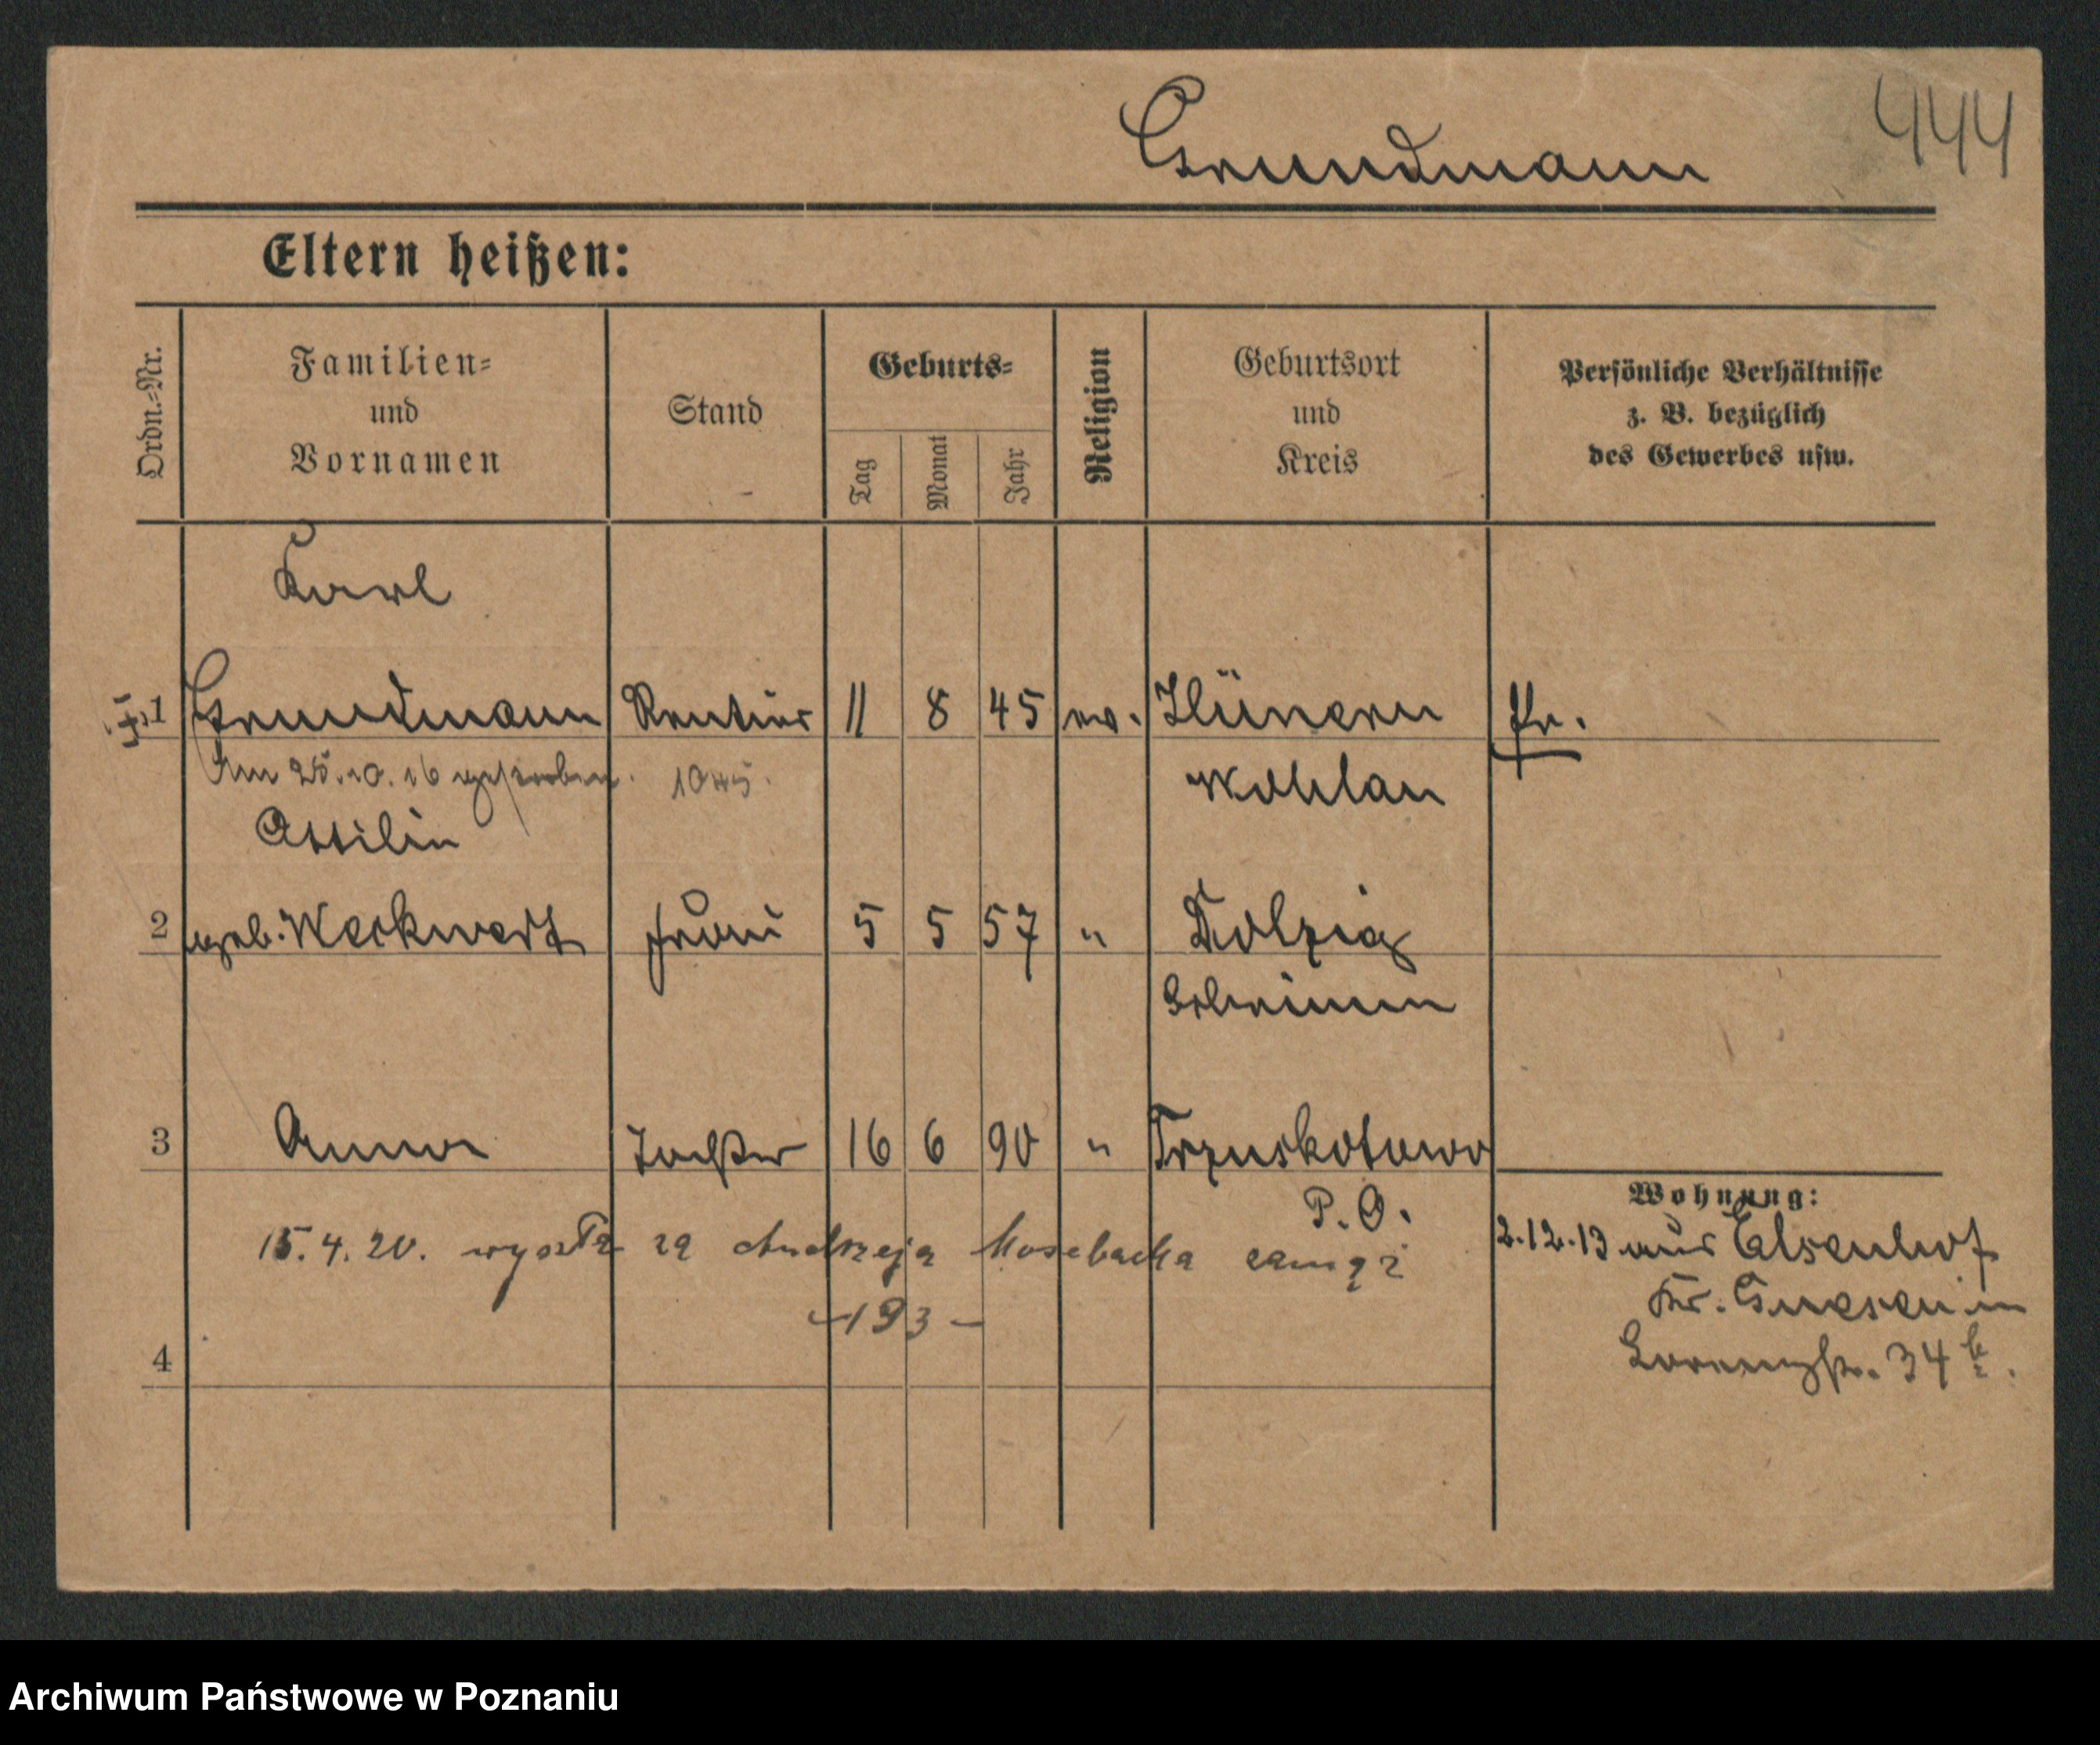 Grundmann
444
Eltern heißen:
Ordn.-Nr.
Familien-
und
Vornamen
Stand
Geburts-
Tag
Monat
Jahr
Religion
Geburtsort
und
Kreis
Persönliche Verhältnisse
z. B. bezüglich
des Gewerbes usw.
Karl
1 Grundmann Rentier 11 8 45 ev. Hünern Pr.
Am 25.10.16 gestorben. 1045.
Wohlau
Ottilie
2 geb. Weckwert Frau 5 5 57 " Dolzig
Schrimm
3 Anna Tochter 16 6 90 " Trzuskotowo
P. O.
Wohnung:
15.4.20. wyszła za Andrzeja Mosebacha zamąż
2.12.13 aus Elsenhof
Kr. Gnesen in
- 193 -
34
4
Archiwum Państwowe w Poznaniu